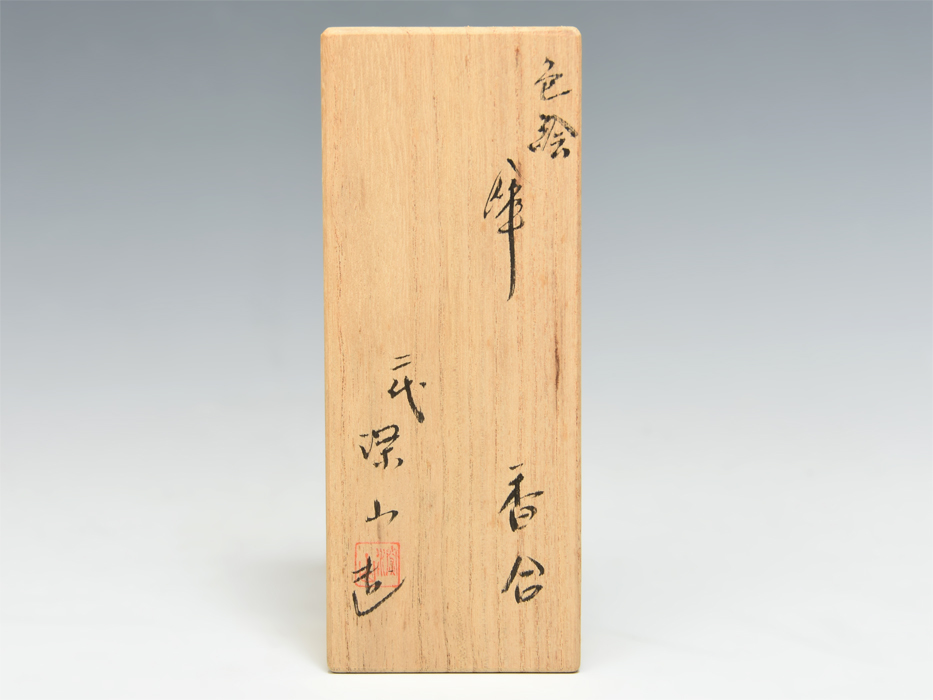 色絵 香合
二代 深山 造